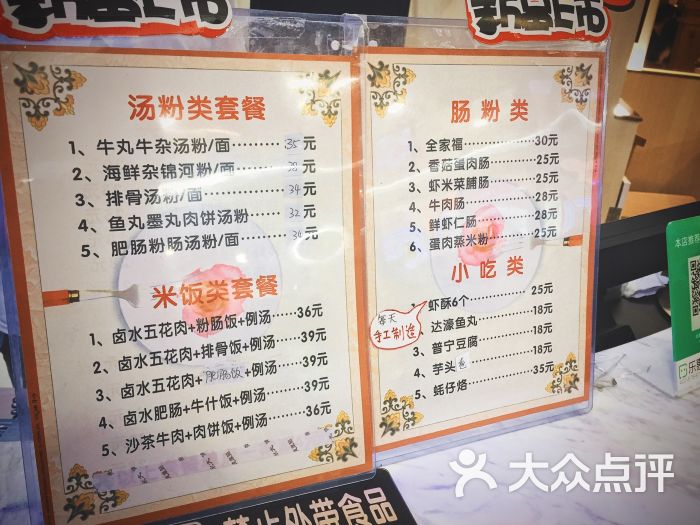 汤粉类套餐
1、牛丸牛杂汤粉/面………35元
2、海鲜杂锦河粉/面………38元
3、排骨汤粉/面………34元
4、鱼丸墨丸肉饼汤粉……32元
5、肥肠粉肠汤粉/面………36元
米饭类套餐
1、卤水五花肉+粉肠饭+例汤……36元
2、卤水五花肉+排骨饭+例汤……39元
3、卤水五花肉+肥肠饭+例汤……39元
4、卤水肥肠+牛什饭+例汤………39元
5、沙茶牛肉+肉饼饭+例汤………36元
肠粉类
1、全家福………30元
2、香菇蛋肉肠………25元
3、虾米菜脯肠………25元
4、牛肉肠………28元
5、鲜虾仁肠………28元
6、蛋肉蒸米粉………25元
小吃类
1、虾酥6个………25元
每天
手工制造
达濠鱼丸………18元
3、普宁豆腐………18元
4、芋头卷………18元
5、蚝仔烙………35元
禁止外带食品
本店推荐
大众点评